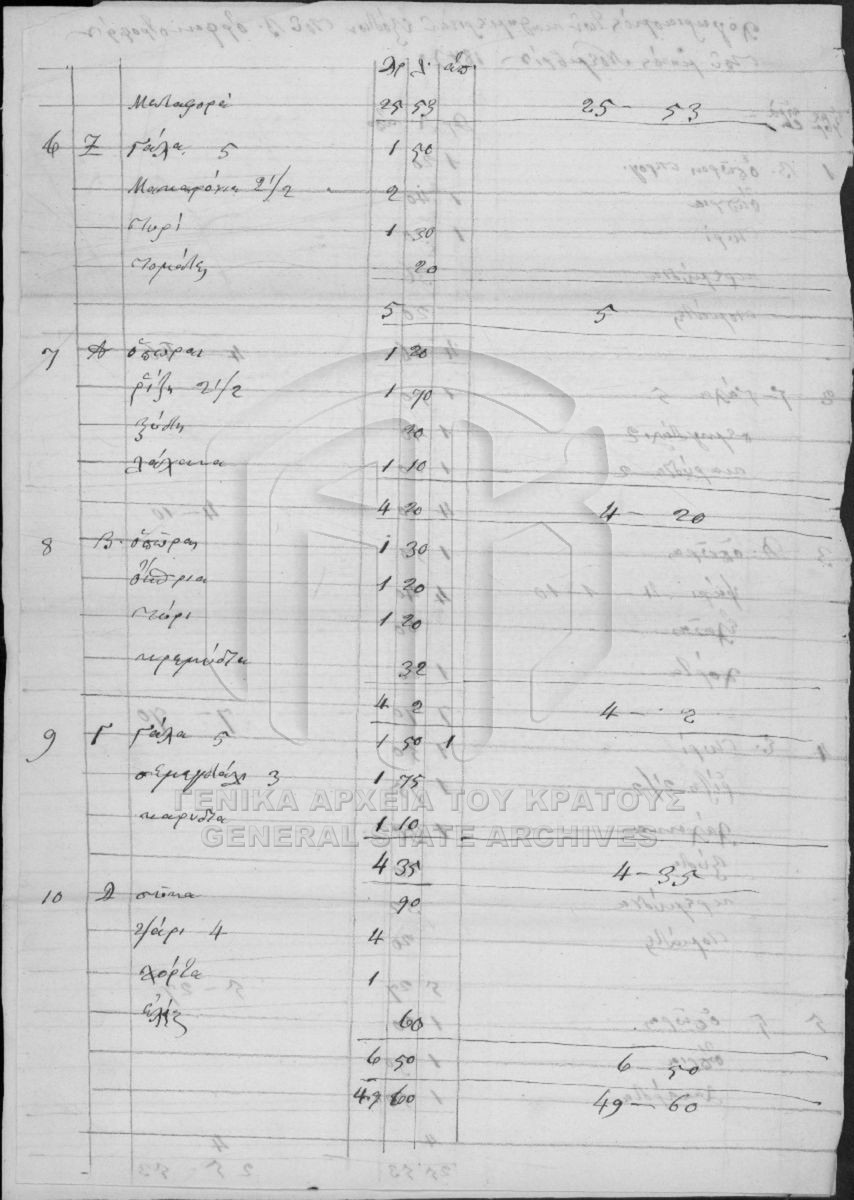 Δρ λ. απ
Μεταφορά 25 53 25 - 53
6 Ζ Γάλα 5 1 50
Μακαρόνια 2 1/2 2
τυρί 1 30
τομάτες 20
5 5
7 Α ὀπῶραι 1 20
ρίζι 2 1/2 1 70
ξύδι 20
λάχανα 1 10
4 20 4 - 20
8 Β. ὀπῶραι 1 30
1 20
τύρι 1 20
κρεμύδια 32
4 2 4 - 2
9 Γ Γάλα 5 1 50 1
σεμιγδάλι 3 1 75
καρύδια 1 10
4 35 4 - 35
10 Δ σῦκα 90
ψάρι 4 4
χόρτα 1
ἐλιές 60
6 50 6 50
49 60 49 - 60
ΓΕΝΙΚΑ ΑΡΧΕΙΑ ΤΟΥ ΚΡΑΤΟΥΣ
GENERAL STATE ARCHIVES